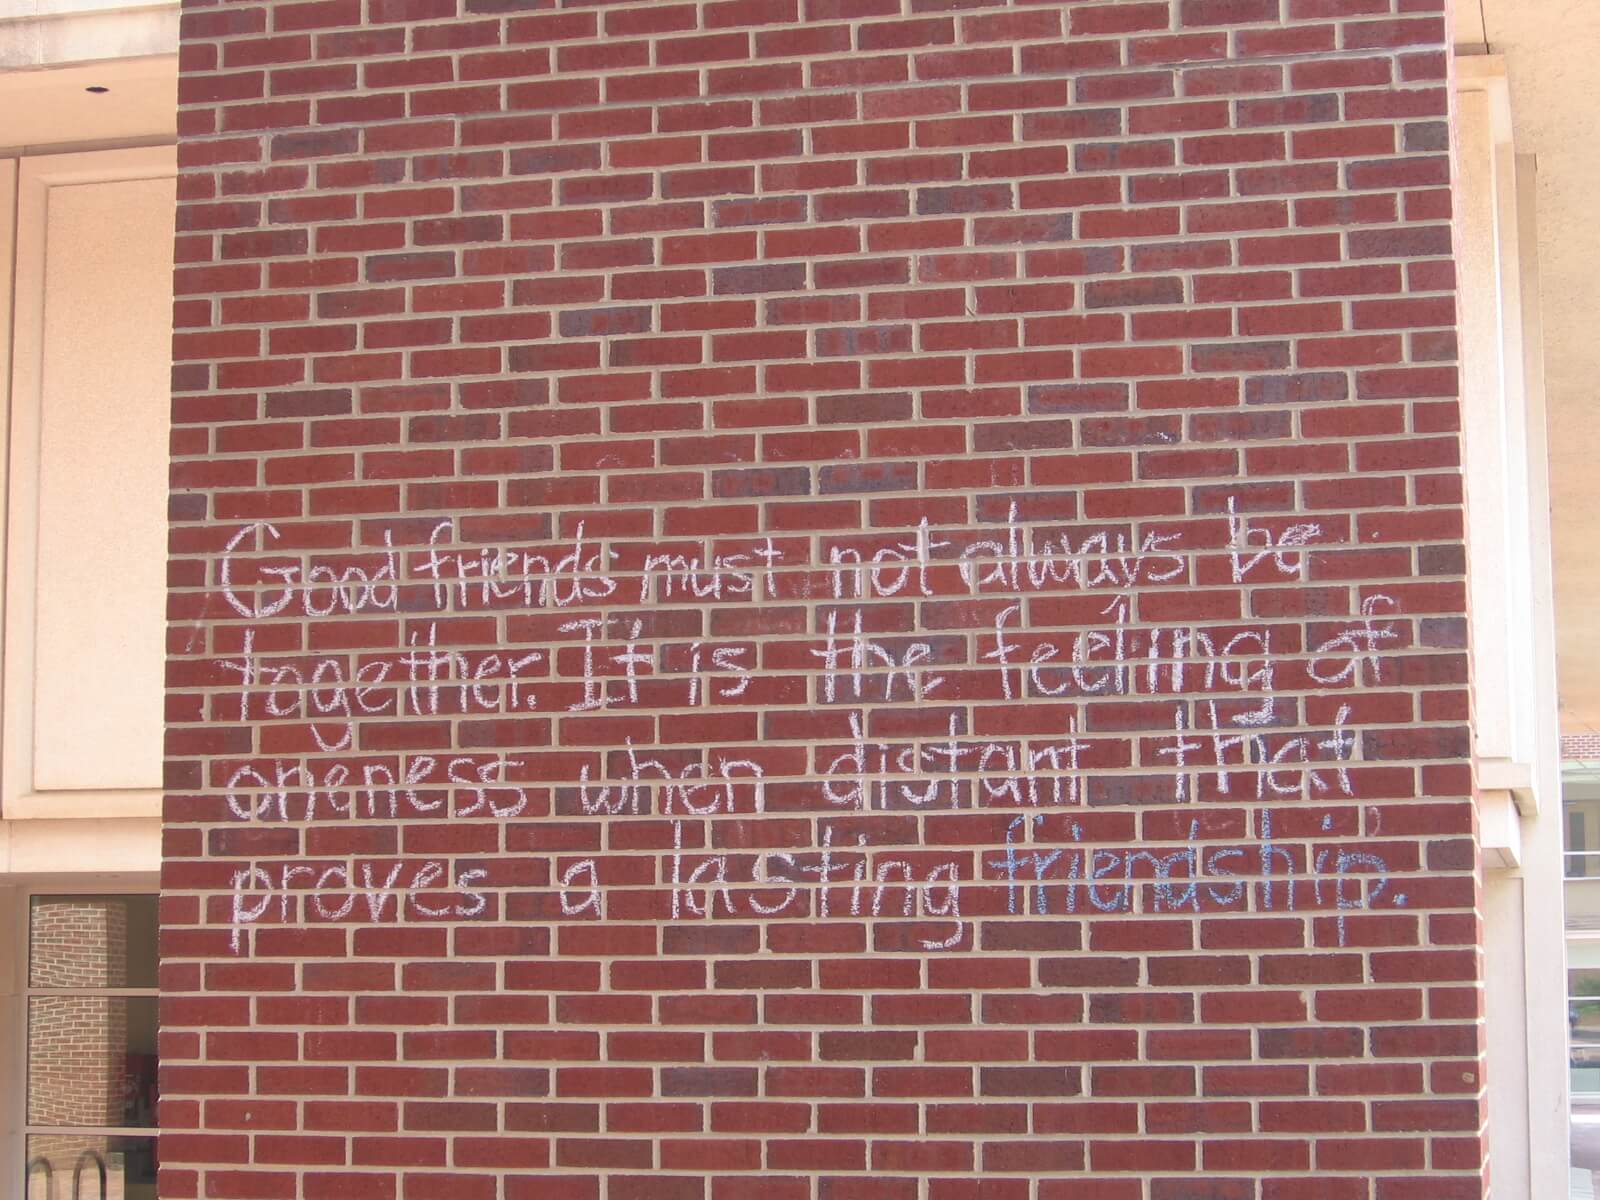 Good friends must not always be
together. It is the feeling of
oneness when distant that
proves a lasting friendship.